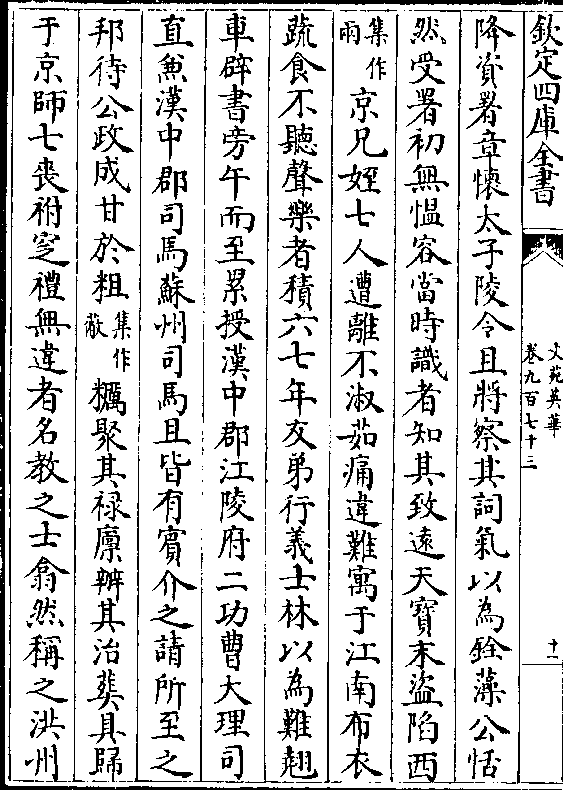 欽定四庫全書
文苑英華
卷九百七十三
十一
降資署章懷太子陵令且將察其詞氣以為銓藻公恬
然受署初無愠容當時識者知其致遠天寶末盜陷西
集作兩京兄姪七人遭離不淑茹痛違難寓于江南布衣
蔬食不聽聲樂者積六七年友弟行義士林以為難翹
車辟書旁午而至累授漢中郡江陵府二功曹大理司
直兼漢中郡司馬蘇州司馬且皆有賓介之請所至之
邦待公政成甘於粗集作敝糲聚其禄廩辨其治葬具歸
于京師七喪祔窆禮無違者名教之士翕然稱之洪州